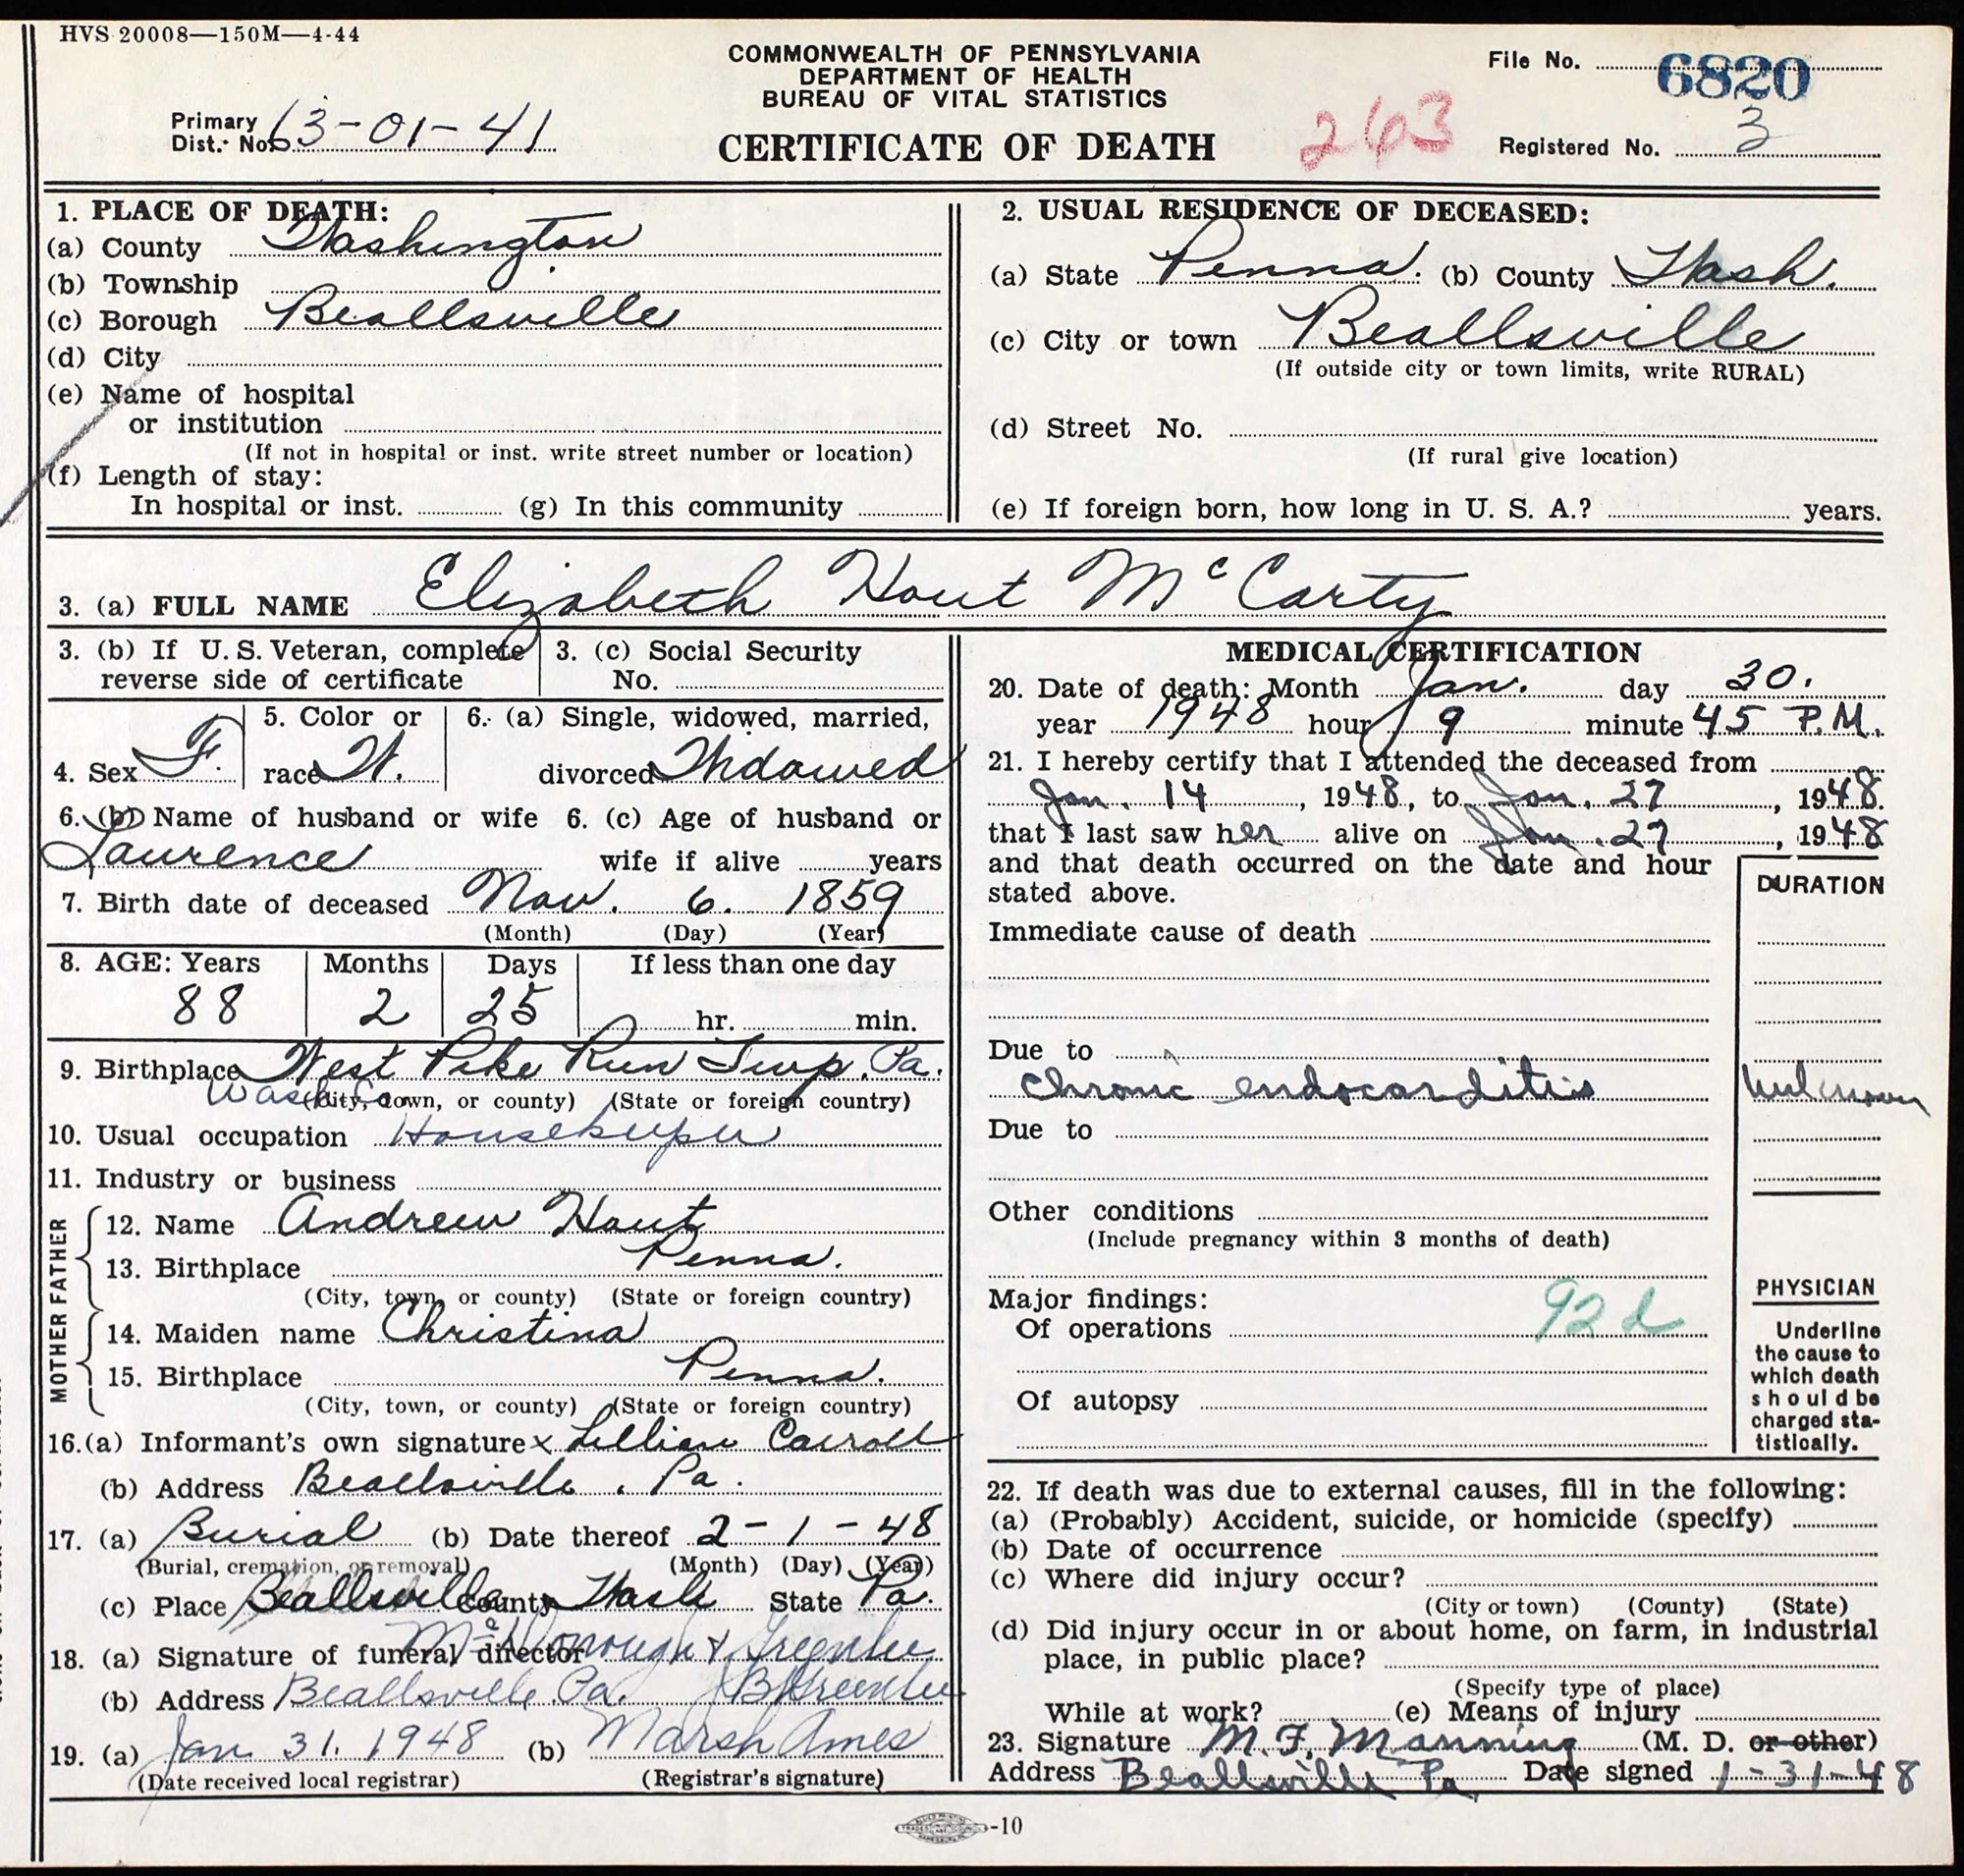 HVS 20008—150M—4-44
COMMONWEALTH OF PENNSYLVANIA
DEPARTMENT OF HEALTH
BUREAU OF VITAL STATISTICS
CERTIFICATE OF DEATH
File No. 6820
Primary Dist. No. 63-01-41
263
Registered No. 3
1. PLACE OF DEATH:
(a) County Washington
(b) Township
(c) Borough Beallsville
(d) City
(e) Name of hospital
or institution
(If not in hospital or inst. write street number or location)
(f) Length of stay:
In hospital or inst. (g) In this community
2. USUAL RESIDENCE OF DECEASED:
(a) State Penna. (b) County Wash.
(c) City or town Beallsville
(If outside city or town limits, write RURAL)
(d) Street No.
(If rural give location)
(e) If foreign born, how long in U. S. A.? years.
3. (a) FULL NAME Elizabeth Hout McCarty
3. (b) If U. S. Veteran, complete
reverse side of certificate
3. (c) Social Security
No.
4. Sex F.
5. Color or
race W.
6. (a) Single, widowed, married,
divorced Widowed
6. (b) Name of husband or wife
Laurence
6. (c) Age of husband or
wife if alive years
7. Birth date of deceased Nov. 6. 1859
(Month) (Day) (Year)
8. AGE: Years Months Days If less than one day
88 2 25 hr. min.
9. Birthplace West Pike Run Twp. Pa.
Wash Co.
(City, town, or county) (State or foreign country)
10. Usual occupation Housekeeper
11. Industry or business
FATHER
12. Name Andrew Hout
13. Birthplace Penna.
(City, town, or county) (State or foreign country)
MOTHER
14. Maiden name Christina
15. Birthplace Penna.
(City, town, or county) (State or foreign country)
16.(a) Informant's own signature x Lillian Carroll
(b) Address Beallsville, Pa.
17. (a) Burial (b) Date thereof 2-1-48
(Burial, cremation, or removal) (Month) (Day) (Year)
(c) Place Beallsville County Wash State Pa.
18. (a) Signature of funeral director McDonough & Greenlee
(b) Address Beallsville, Pa. J B Greenlee
19. (a) Jan 31, 1948 (b) Marsh Ames
(Date received local registrar) (Registrar's signature)
MEDICAL CERTIFICATION
20. Date of death: Month Jan. day 30.
year 1948 hour 9 minute 45 P.M.
21. I hereby certify that I attended the deceased from
Jan. 14, 1948, to Jan. 27, 1948.
that I last saw her alive on Jan. 27, 1948
and that death occurred on the date and hour
stated above.
DURATION
Immediate cause of death
Due to
chronic endocarditis Unknown
Due to
Other conditions
(Include pregnancy within 3 months of death)
Major findings:
Of operations 92d
Of autopsy
PHYSICIAN
Underline
the cause to
which death
should be
charged sta-
tistically.
22. If death was due to external causes, fill in the following:
(a) (Probably) Accident, suicide, or homicide (specify)
(b) Date of occurrence
(c) Where did injury occur?
(City or town) (County) (State)
(d) Did injury occur in or about home, on farm, in industrial
place, in public place?
(Specify type of place)
While at work? (e) Means of injury
23. Signature M. F. Manning (M. D. or other)
Address Beallsville Pa. Date signed 1-31-48
-10